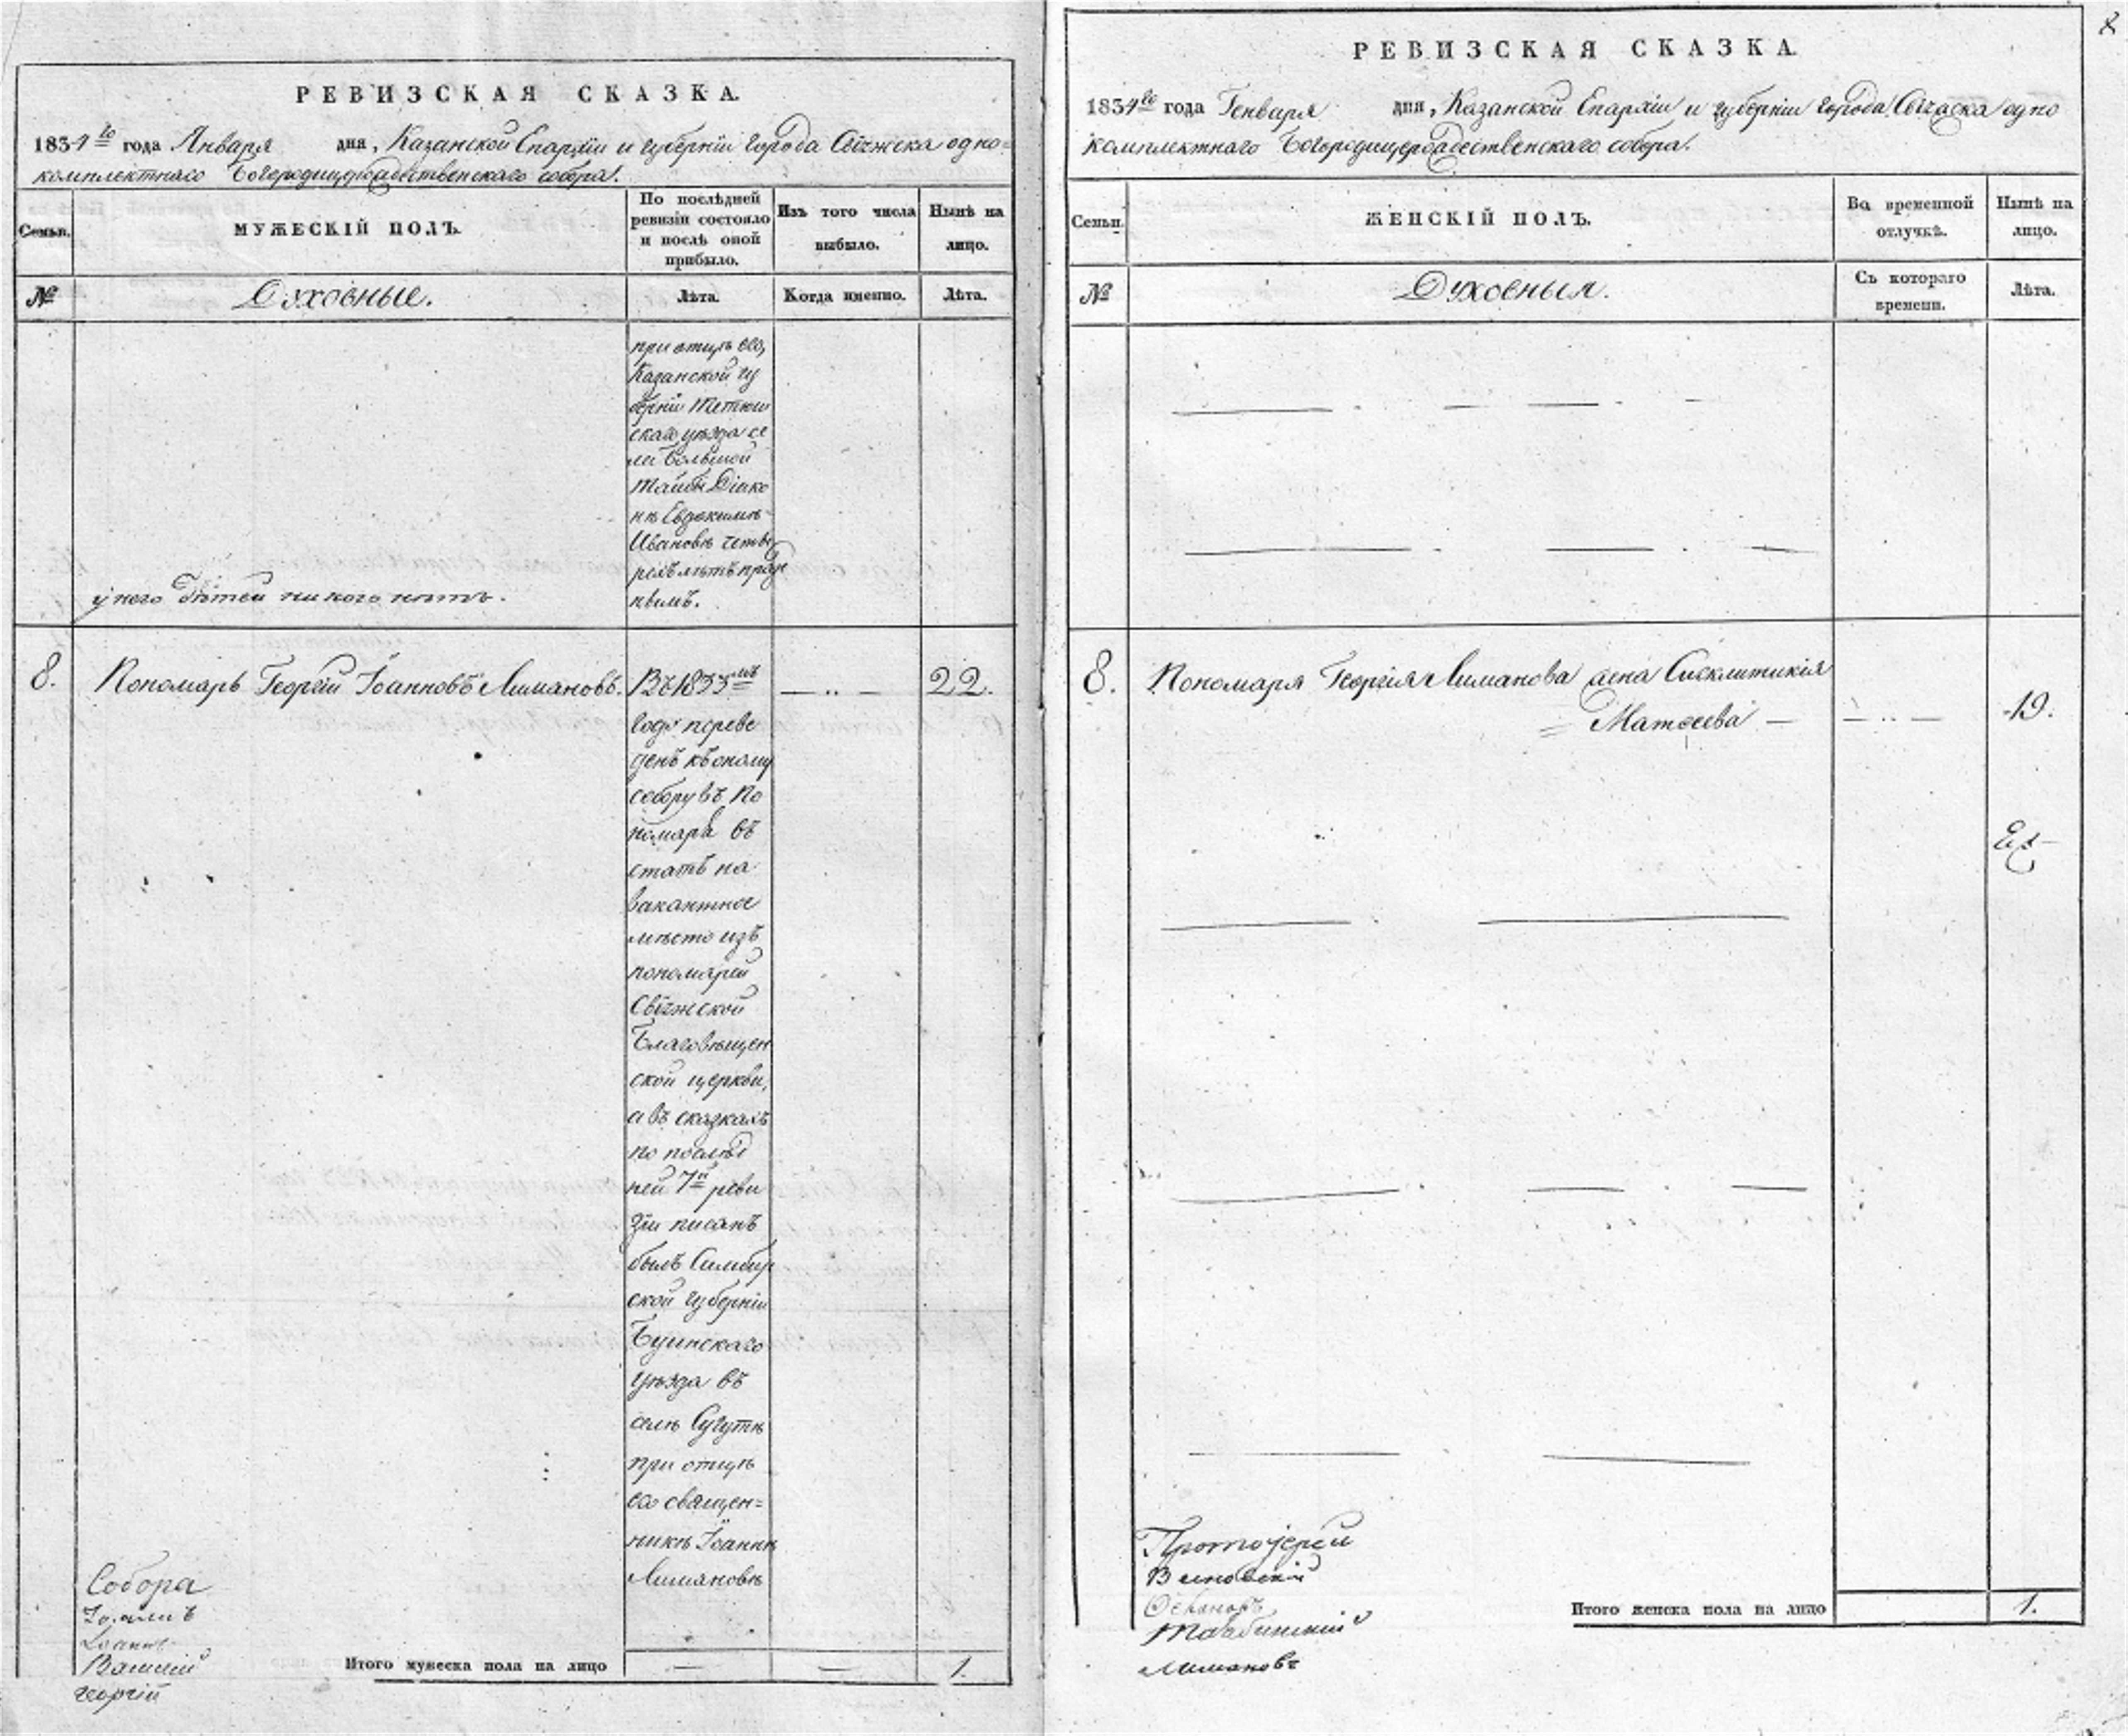 РЕВИЗСКАЯ СКАЗКА.
1834го года Января дня, Казанской Епархіи и губерніи города Свіяжска одно-
комплектнаго Богородицерождественскаго собора.
Семьи.
МУЖЕСКІЙ ПОЛЪ.
По послѣдней
ревизіи состояло
и послѣ оной
прибыло.
Изъ того числа
выбыло.
Нынѣ на
лицо.
№
Духовные.
Лѣта.
Когда именно.
Лѣта.
при отцѣ его,
Казанской гу
берніи Тетюш
скаго уѣзда се
ла Большой
Діако
нѣ Евдокимѣ
Ивановѣ четве
рехъ лѣтъ
у него дѣтей никого нѣтъ.
8.
Пономарь Георгій Іоанновъ Лимановъ.
Въ 1833мъ
22.
году переве
денъ къ оному
собору въ по
номаря въ
статъ на
вакантное
мѣсто изъ
пономарей
Свіяжской
Благовѣщен
ской церкви,
а въ сказкахъ
по послѣд
ней 7й реви
зіи писанъ
былъ Симбир
ской губерніи
Буинскаго
уѣзда въ
селѣ Сугутѣ
при отцѣ
его священ=
никѣ Іоаннѣ
Лимановѣ
Собора
Іоаннъ
Василій
Георгій
Итого мужеска пола на лицо
1.
РЕВИЗСКАЯ СКАЗКА.
1834го года Генваря дня, Казанской Епархіи и губерніи города Свіяжска одно
комплектнаго Богородицерождественскаго собора.
Семьи.
ЖЕНСКІЙ ПОЛЪ.
Во временной
отлучкѣ.
Нынѣ на
лицо.
№
Духовныя.
Съ котораго
времени.
Лѣта.
8.
Пономаря Георгія Лиманова жена Сигклитикія
Матѳеева
19.
Протоіерей
Лимановъ
Итого женска пола на лицо
1.